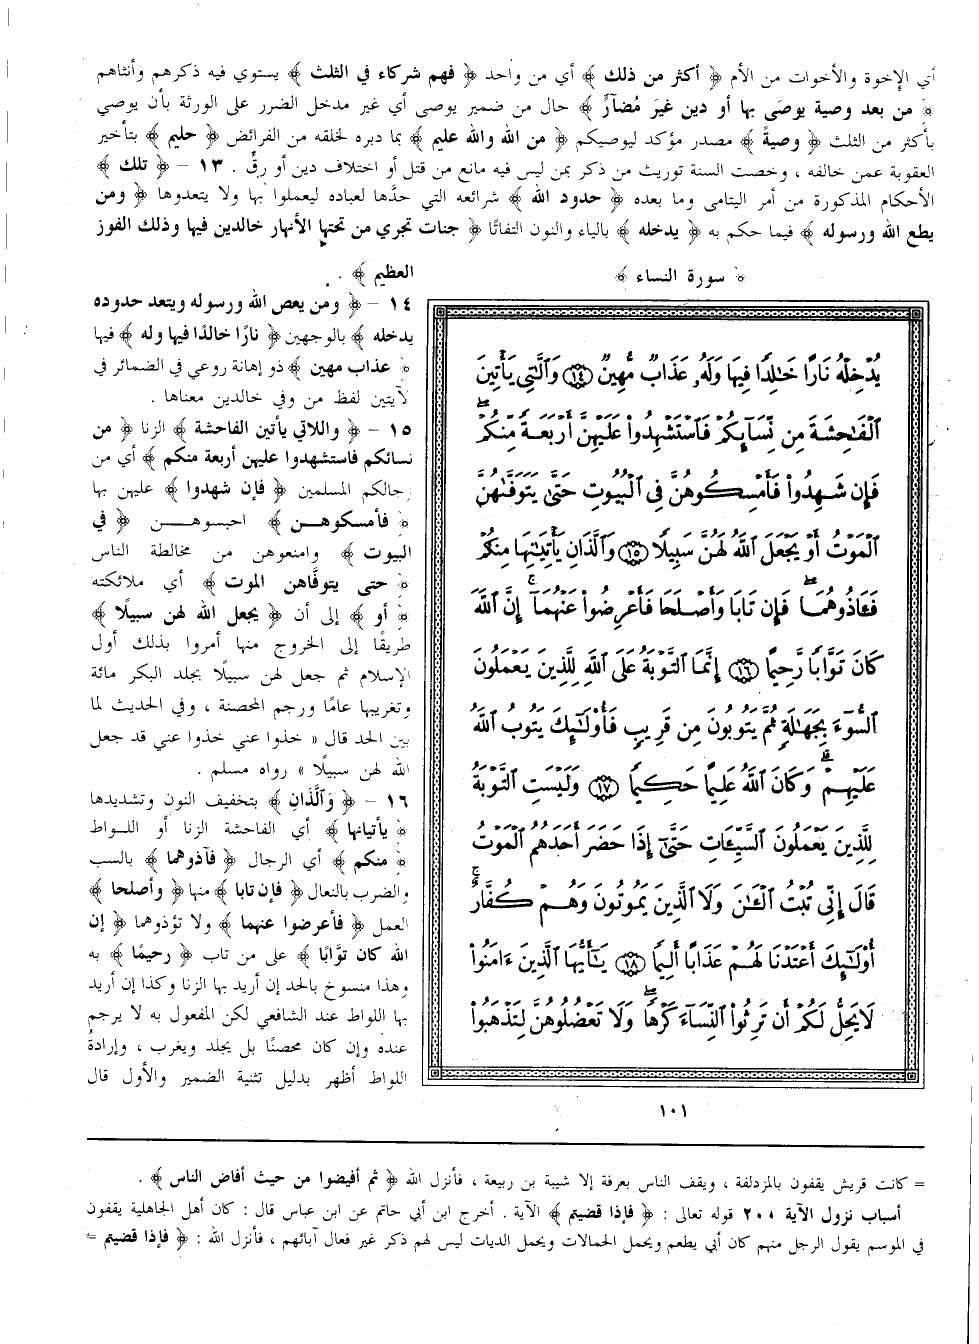 أي الإخوة والأخوات من الأم ﴿ أكثر من ذلك ﴾ أي من واحد ﴿ فهم شركاء في الثلث ﴾ يستوي فيه ذكرهم وأنثاهم
﴿ من بعد وصية يوصَى بها أو دين غيرَ مُضآرٍّ ﴾ حال من ضمير يوصى أي غير مدخل الضرر على الورثة بأن يوصي
بأكثر من الثلث ﴿ وصيةً ﴾ مصدر مؤكد ليوصيكم ﴿ من الله والله عليم ﴾ بما دبره لخلقه من الفرائض ﴿ حليم ﴾ بتأخير
العقوبة عمن خالفه ، وخصت السنة توريث من ذكر بمن ليس فيه مانع من قتل أو اختلاف دين أو رقٍّ . ١٣ – ﴿ تلك ﴾
الأحكام المذكورة من أمر اليتامى وما بعده ﴿ حدود الله ﴾ شرائعه التي حدَّها لعباده ليعملوا بها ولا يتعدوها ﴿ ومن
يطع الله ورسوله ﴾ فيما حكم به ﴿ يدخله ﴾ بالياء والنون التفاتًا ﴿ جنات تجري من تحتها الأنهار خالدين فيها وذلك الفوز
العظيم ﴾ .
١٤ – ﴿ ومن يعص الله ورسوله ويتعد حدوده
يدخله ﴾ بالوجهين ﴿ نارًا خالدًا فيها وله ﴾ فيها
﴿ عذاب مهين ﴾ ذو إهانة روعي في الضمائر في
لآيتين لفظ من وفي خالدين معناها .
١٥ – ﴿ واللاتي يأتين الفاحشة ﴾ الزنا ﴿ من
نسائكم فاستشهدوا عليهن أربعة منكم ﴾ أي من
رجالكم المسلمين ﴿ فإن شهدوا ﴾ عليهن بها
﴿ فأمسكوهـن ﴾ احبسوهـن ﴿ في
البيوت ﴾ وامنعوهن من مخالطة الناس
﴿ حتى يتوفَّاهن الموت ﴾ أي ملائكته
﴿ أو ﴾ إلى أن ﴿ يجعل الله لهن سبيلًا ﴾
طريقًا إلى الخروج منها أمروا بذلك أول
الإسلام ثم جعل لهن سبيلًا بجلد البكر مائة
وتغريبها عامًا ورجم المحصنة ، وفي الحديث لما
بين الحد قال « خذوا عني خذوا عني قد جعل
الله لهن سبيلًا » رواه مسلم .
١٦ – ﴿ وَالَّذانِ ﴾ بتخفيف النون وتشديدها
﴿ يأتيانها ﴾ أي الفاحشة الزنا أو اللـواط
﴿ منكم ﴾ أي الرجال ﴿ فآذوهما ﴾ بالسب
والضرب بالنعال ﴿ فإن تابا ﴾ منها ﴿ وأصلحا ﴾
العمل ﴿ فأعرضوا عنهما ﴾ ولا تؤذوهما ﴿ إن
الله كان توَّابًا ﴾ على من تاب ﴿ رحيمًا ﴾ به
وهذا منسوخ بالحد إن أريد بها الزنا وكذا إن أريد
بها اللواط عند الشافعي لكن المفعول به لا يرجم
عنده وإن كان محصنًا بل يجلد ويغرب ، وإرادةُ
اللواط أظهر بدليل تثنية الضمير والأول قال
﴿ سورة النساء ﴾
يُدْخِلْهُ نَارًا خَٰلِدًا فِيهَا وَلَهُۥ عَذَابٌ مُّهِينٌ ١٤ وَٱلَّٰتِى يَأْتِينَ
ٱلْفَٰحِشَةَ مِن نِّسَآئِكُمْ فَٱسْتَشْهِدُوا۟ عَلَيْهِنَّ أَرْبَعَةً مِّنكُمْ ۖ
فَإِن شَهِدُوا۟ فَأَمْسِكُوهُنَّ فِى ٱلْبُيُوتِ حَتَّىٰ يَتَوَفَّىٰهُنَّ
ٱلْمَوْتُ أَوْ يَجْعَلَ ٱللَّهُ لَهُنَّ سَبِيلًا ١٥ وَٱلَّذَانِ يَأْتِيَٰنِهَا مِنكُمْ
فَـَٔاذُوهُمَا ۖ فَإِن تَابَا وَأَصْلَحَا فَأَعْرِضُوا۟ عَنْهُمَآ ۗ إِنَّ ٱللَّهَ
كَانَ تَوَّابًا رَّحِيمًا ١٦ إِنَّمَا ٱلتَّوْبَةُ عَلَى ٱللَّهِ لِلَّذِينَ يَعْمَلُونَ
ٱلسُّوٓءَ بِجَهَٰلَةٍ ثُمَّ يَتُوبُونَ مِن قَرِيبٍ فَأُو۟لَٰٓئِكَ يَتُوبُ ٱللَّهُ
عَلَيْهِمْ ۗ وَكَانَ ٱللَّهُ عَلِيمًا حَكِيمًا ١٧ وَلَيْسَتِ ٱلتَّوْبَةُ
لِلَّذِينَ يَعْمَلُونَ ٱلسَّيِّـَٔاتِ حَتَّىٰٓ إِذَا حَضَرَ أَحَدَهُمُ ٱلْمَوْتُ
قَالَ إِنِّى تُبْتُ ٱلْـَٰٔنَ وَلَا ٱلَّذِينَ يَمُوتُونَ وَهُمْ كُفَّارٌ ۚ
أُو۟لَٰٓئِكَ أَعْتَدْنَا لَهُمْ عَذَابًا أَلِيمًا ١٨ يَٰٓأَيُّهَا ٱلَّذِينَ ءَامَنُوا۟
لَا يَحِلُّ لَكُمْ أَن تَرِثُوا۟ ٱلنِّسَآءَ كَرْهًا ۖ وَلَا تَعْضُلُوهُنَّ لِتَذْهَبُوا۟
١٠١
= كانت قريش يقفون بالمزدلفة ، ويقف الناس بعرفة إلا شيبة بن ربيعة ، فأنزل الله ﴿ ثم أفيضوا من حيث أفاض الناس ﴾ .
أسباب نزول الآية ٢٠٠ قوله تعالى : ﴿ فإذا قضيتم ﴾ الآية . أخرج ابن أبي حاتم عن ابن عباس قال : كان أهل الجاهلية يقفون
في الموسم يقول الرجل منهم كان أبي يطعم ويحمل الحمالات ويحمل الديات ليس لهم ذكر غير فعال آبائهم ، فأنزل الله : ﴿ فإذا قضيتم =